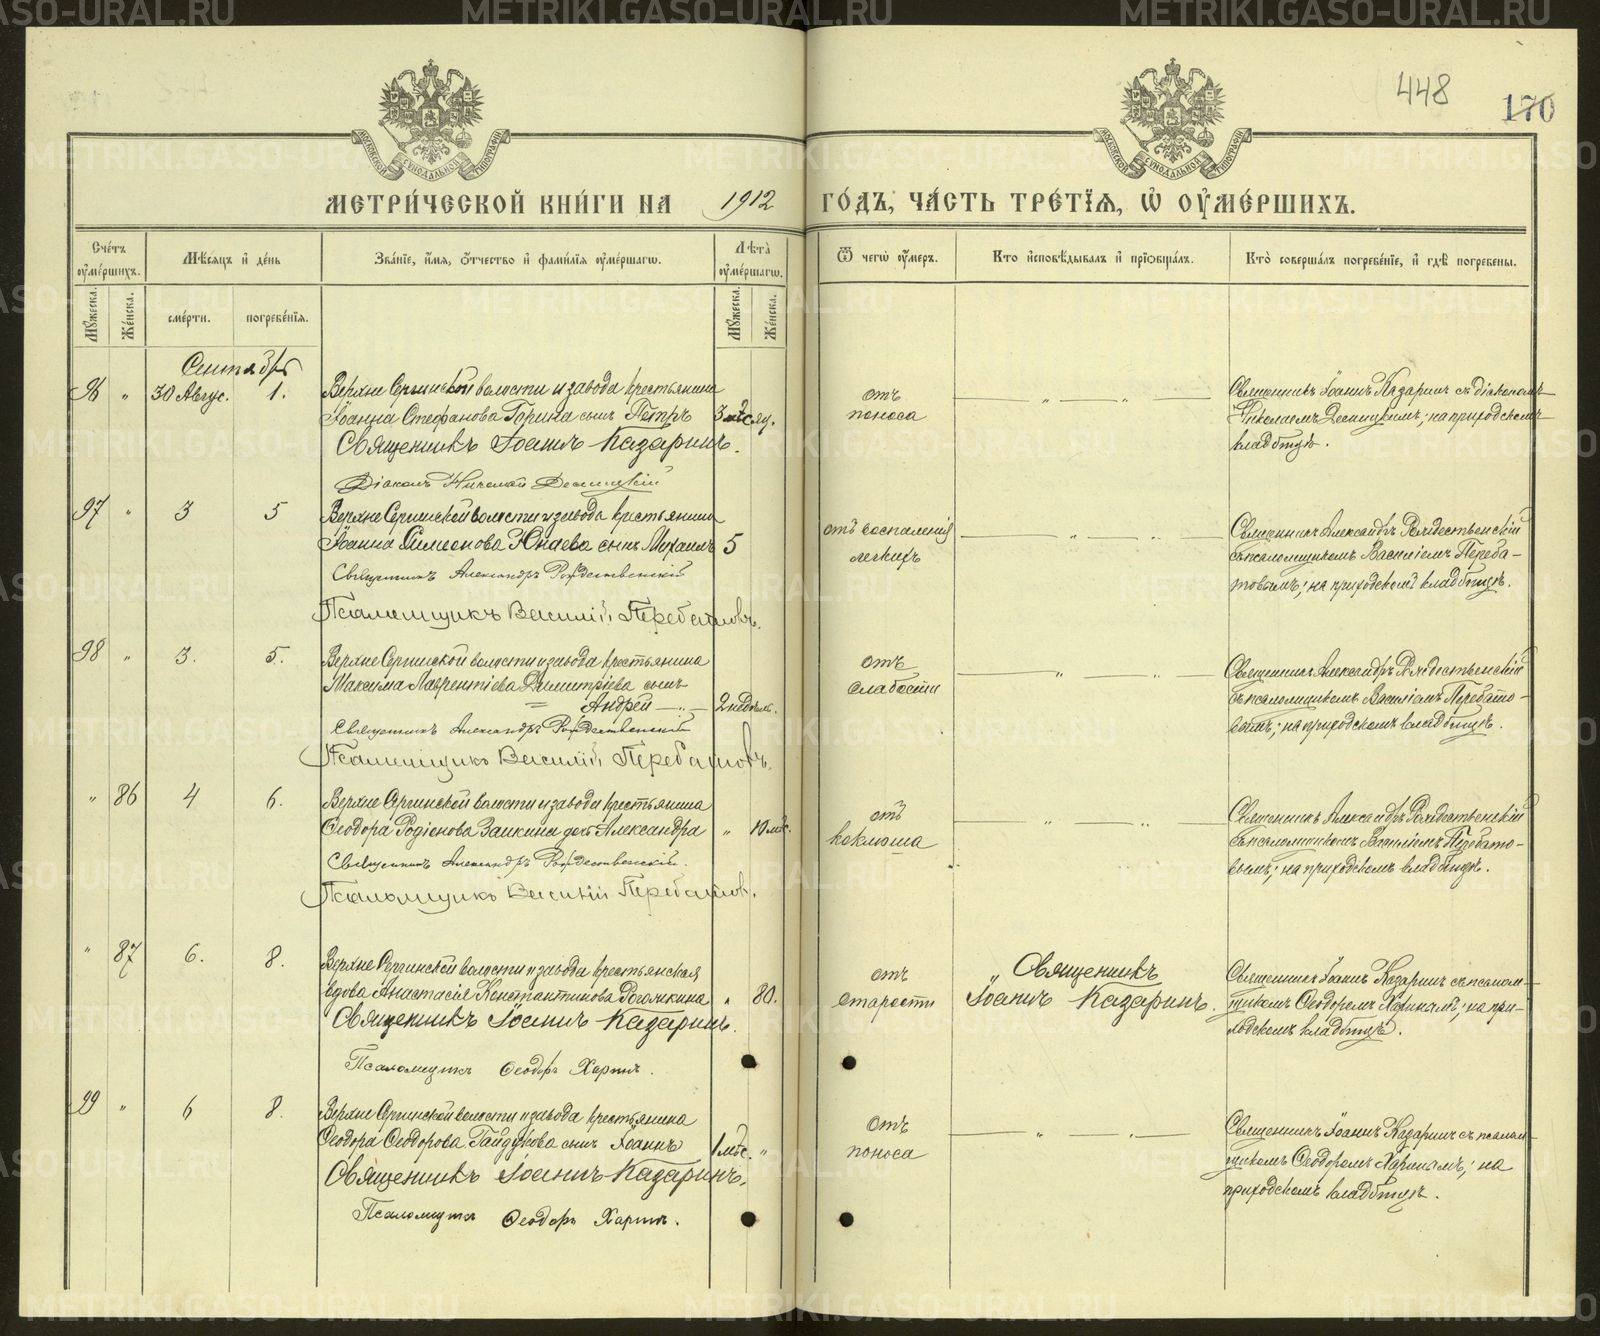 METRIKI.GASO-URAL.RU
448
170
МОСКОВСКОЙ СУНОДАЛЬНОЙ ТИПОГРАФІИ
МЕТРИ́ЧЕСКОЙ КНИ́ГИ НА 1912 ГО́ДЪ, ЧА́СТЬ ТРЕ́ТІЯ, Ѡ ОУМЕ́РШИХЪ.
Сче́тъ оуме́ршихъ.
Мꙋ́жеска.
Же́нска.
Мѣ́сяцъ и де́нь
сме́рти.
погребе́нія.
Зва́ніе, и́мя, о́тчество и фами́лія оуме́ршагѡ.
Лѣта̀ оуме́ршагѡ.
Мꙋ́жеска.
Же́нска.
Ѿ чегѡ̀ оу́меръ.
Кто̀ исповѣ́дывалъ и прїѡбща́лъ.
Кто̀ соверша́лъ погребе́ніе, и гдѣ̀ погребены.
Сентябрь
96 " 30 Авгус. 1. Верхне Сергинской волости и завода крестьянина
Іоанна Стефанова Горина сынъ Петръ 3 мѣсяц.
Священникъ Іоаннъ Казаринъ.
Діаконъ Николай Десницкій
отъ
поноса
Священникъ Іоаннъ Казаринъ съ діакономъ
Николаемъ Десницкимъ; на приходскомъ
кладбищѣ.
97 " 3 5 Верхне Сергинской волости и завода крестьянина
Іоанна Симеонова Юнаева сынъ Михаилъ 5
Священникъ Александръ Рождественскій
Псаломщикъ Василій Перебатовъ.
отъ воспаленія
легкихъ
Священникъ Александръ Рождественскій
съ псаломщикомъ Василіемъ Переба-
товымъ; на приходскомъ кладбищѣ.
98 " 3. 5. Верхне Сергинской волости и завода крестьянина
Максима Лаврентіева Димитріева сынъ
Андрей 2 недѣль.
Священникъ Александръ Рождественскій
Псаломщикъ Василій Перебатовъ.
отъ
слабости
Священникъ Александръ Рождественскій
съ псаломщикомъ Василіемъ Перебато-
вымъ; на приходскомъ кладбищѣ.
" 86 4 6. Верхне Сергинской волости и завода крестьянина
Ѳеодора Родіонова Заикина дочь Александра " 10 мѣс.
Священникъ Александръ Рождественскій.
Псаломщикъ Василій Перебатовъ.
отъ
коклюша
Священникъ Александръ Рождественскій
съ псаломщикомъ Василіемъ Перебато-
вымъ; на приходскомъ кладбищѣ.
" 87 6. 8. Верхне Сергинской волости и завода крестьянская
вдова Анастасія Константинова Рогожкина " 80.
Священникъ Іоаннъ Казаринъ.
Псаломщикъ Ѳеодоръ Харинъ.
отъ
старости
" Священникъ
Іоаннъ Казаринъ.
Священникъ Іоаннъ Казаринъ съ псалом-
щикомъ Ѳеодоромъ Харинымъ; на при-
ходскомъ кладбищѣ.
99 " 6 8. Верхне Сергинской волости и завода крестьянина
Ѳеодора Ѳеодорова Гайдукова сынъ Іоаннъ 1 мѣс. "
Священникъ Іоаннъ Казаринъ.
Псаломщикъ Ѳеодоръ Харинъ.
отъ
поноса
Священникъ Іоаннъ Казаринъ съ псалом-
щикомъ Ѳеодоромъ Харинымъ; на
приходскомъ кладбищѣ.